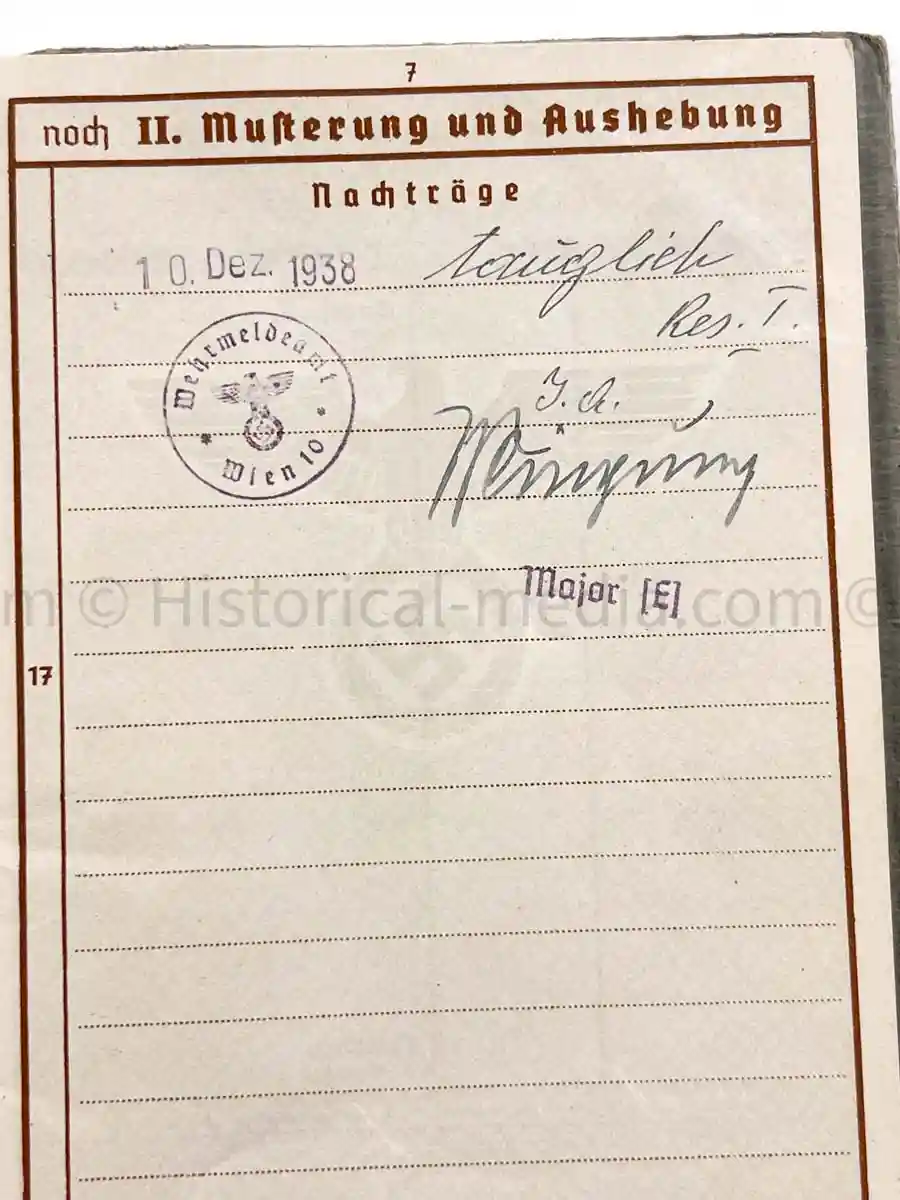 7
noch II. Musterung und Aushebung
Nachträge
10. Dez. 1938 tauglich
Res. I.
Wehrmeldeamt
Wien 10
J. A.
Major [E]
m © Historical-media.com ©
17